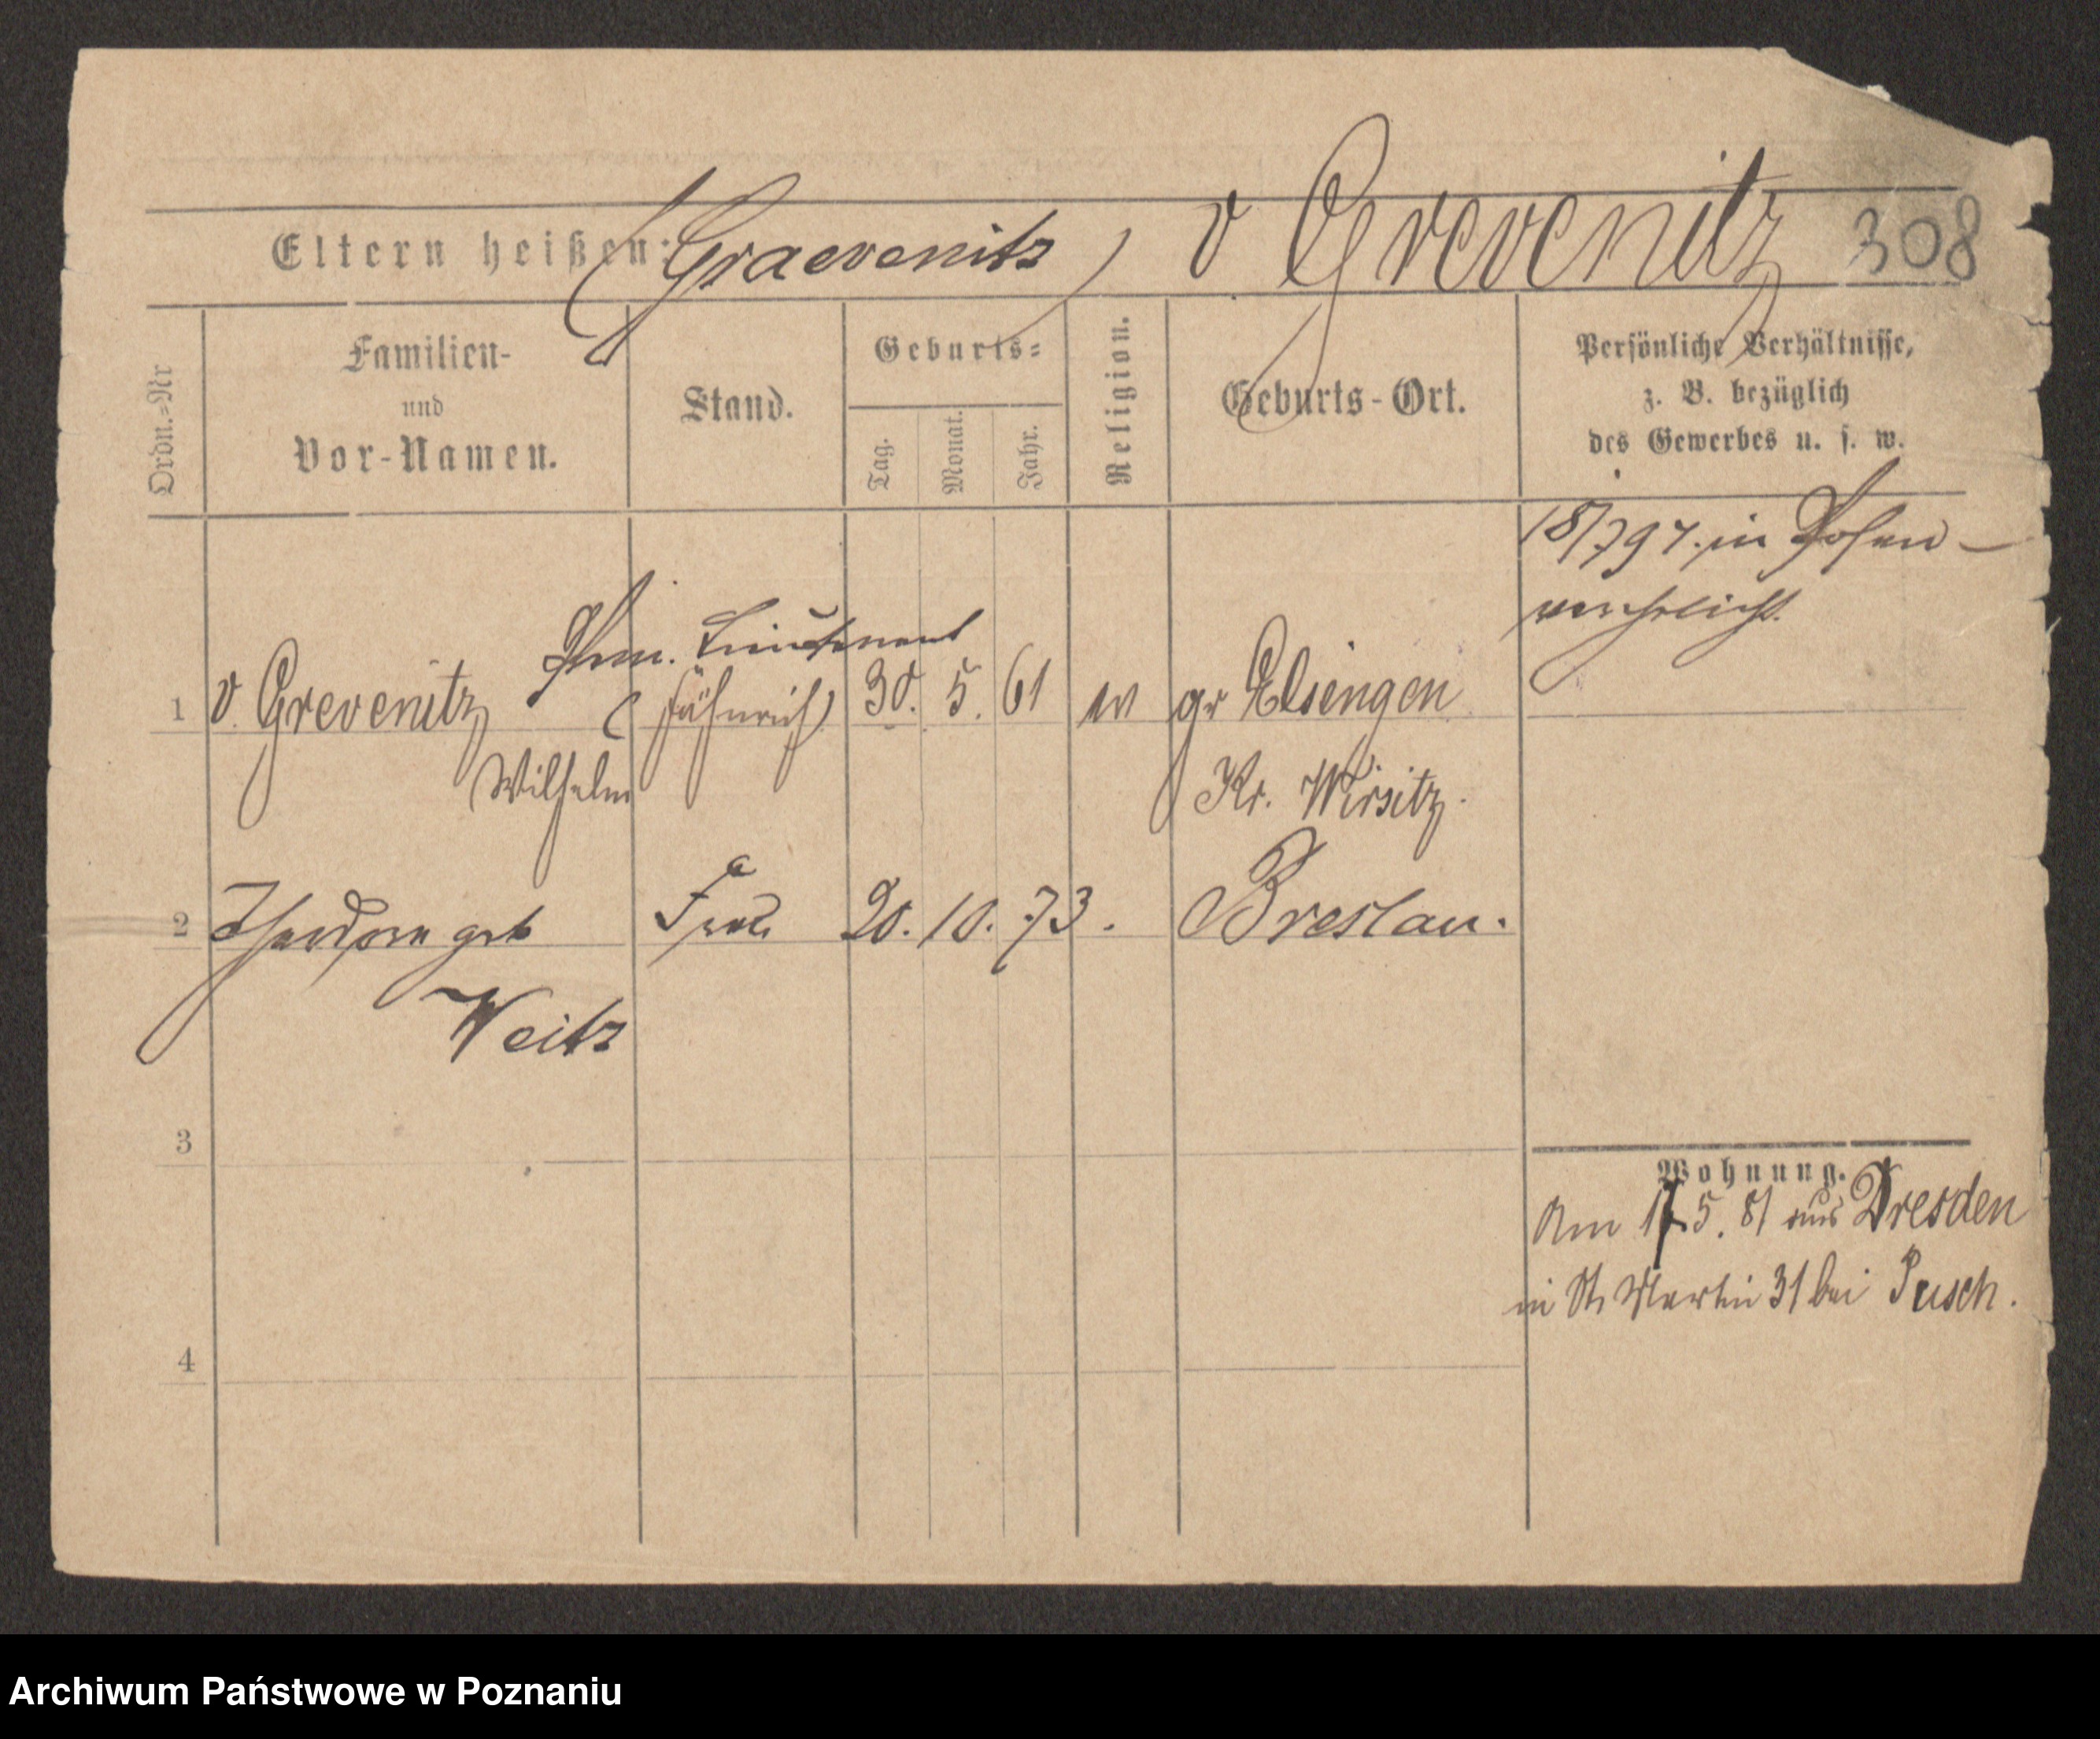 Eltern heißen: (Graevenitz) v. Grevenitz 308
Ordn.=Nr
Familien-
und
Vor-Namen.
Stand.
Geburts=
Tag.
Monat.
Jahr.
Religion.
Geburts-Ort.
Persönliche Verhältnisse,
z. B. bezüglich
des Gewerbes u. s. w.
18/7 97. in Posen
verehelicht.
Prm. Lieutenant
1 v. Grevenitz (Fähnrich) 30. 5. 61 ev gr Elsingen
Wilhelm Kr. Wirsitz.
2 Theodora geb Frau 20. 10. 73. Breslau.
Weitz
3
4
Wohnung.
Am 17. 5. 81 aus Dresden
in St. Martin 31 bei Pusch.
Archiwum Państwowe w Poznaniu